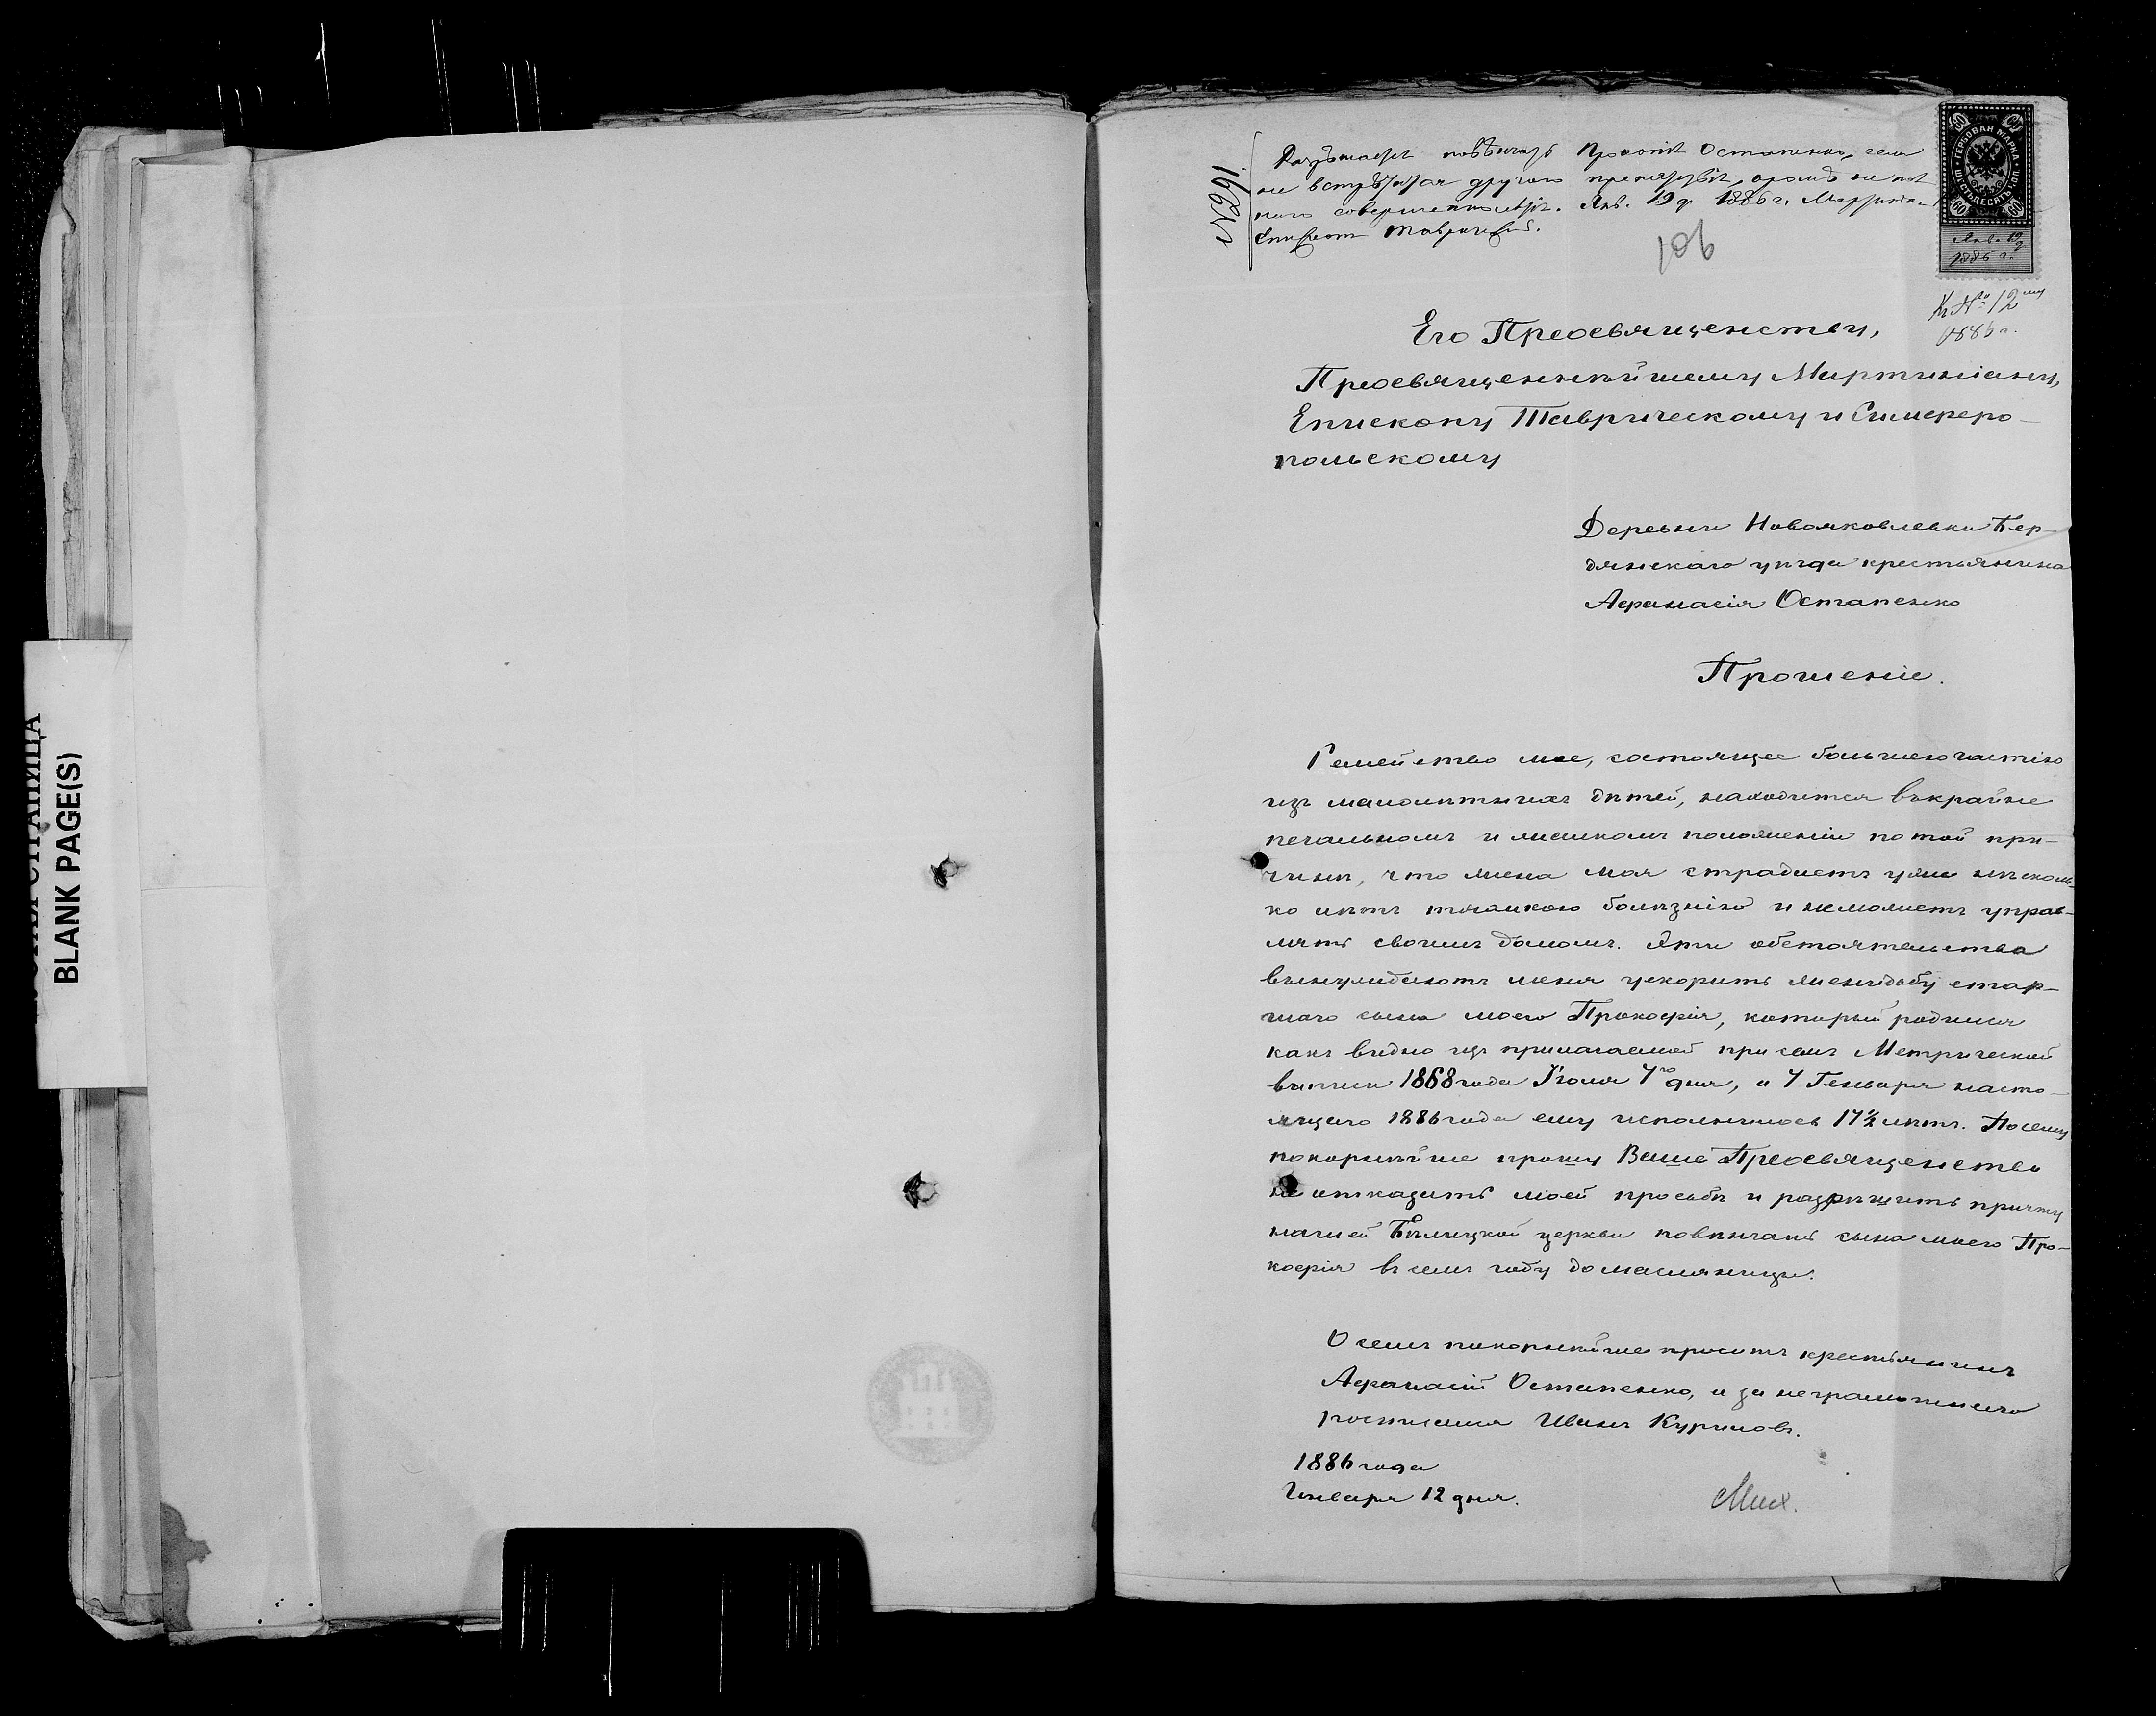 ПУСТАЯ СТРАНИЦА
BLANK PAGE(S)
№ 291.
Разрѣшается повѣнчать Прокопія Остапенко, если
не встрѣтится другого препятствія, кромѣ не пол
наго совершеннолѣтія. Янв. 19 д. 1886 г. Мартиніан
Епископ Таврическій.
106
60 60
ГЕРБОВАЯ МАРКА
ШЕСТЬДЕСЯТЪ КОП.
60 60
Янв. 19 д
1886 г.
Къ № 12
Его Преосвященству,
Преосвященнѣйшему Мартиніану,
Епископу Таврическому и Симферо-
польскому
Деревни Новояковлевки Бер-
дянскаго уѣзда крестьянина
Афанасія Остапенко
Прошеніе.
Семейство мое, состоящее большею частію
изъ малолѣтнихъ дѣтей, находится въ крайне
печальномъ и положеніи по той при-
чинѣ, что жена моя страдаетъ уже нѣсколь-
ко лѣтъ тяжкою болѣзнію и не можетъ управ-
лять своимъ домомъ. Эти обстоятельства
вынуждаютъ меня ускорить женидьбу стар-
шаго сына моего Прокофія, который родился
какъ видно изъ прилагаемой при семъ Метрической
выписи 1868 года Іюля 7го дня, а 7 Генваря насто-
ящего 1886 года ему исполнилось 17½ лѣтъ. Посему
покорнѣйше прошу Ваше Преосвященство
не отказать моей просьбѣ и разрѣшить причту
нашей церкви повѣнчать сына моего Про-
кофія въ семъ году до масляницы.
О семъ покорнѣйше проситъ крестьянинъ
Афанасій Остапенко, а за неграмотнаго
росписался Иванъ Куриловъ.
1886 года
Января 12 дня.